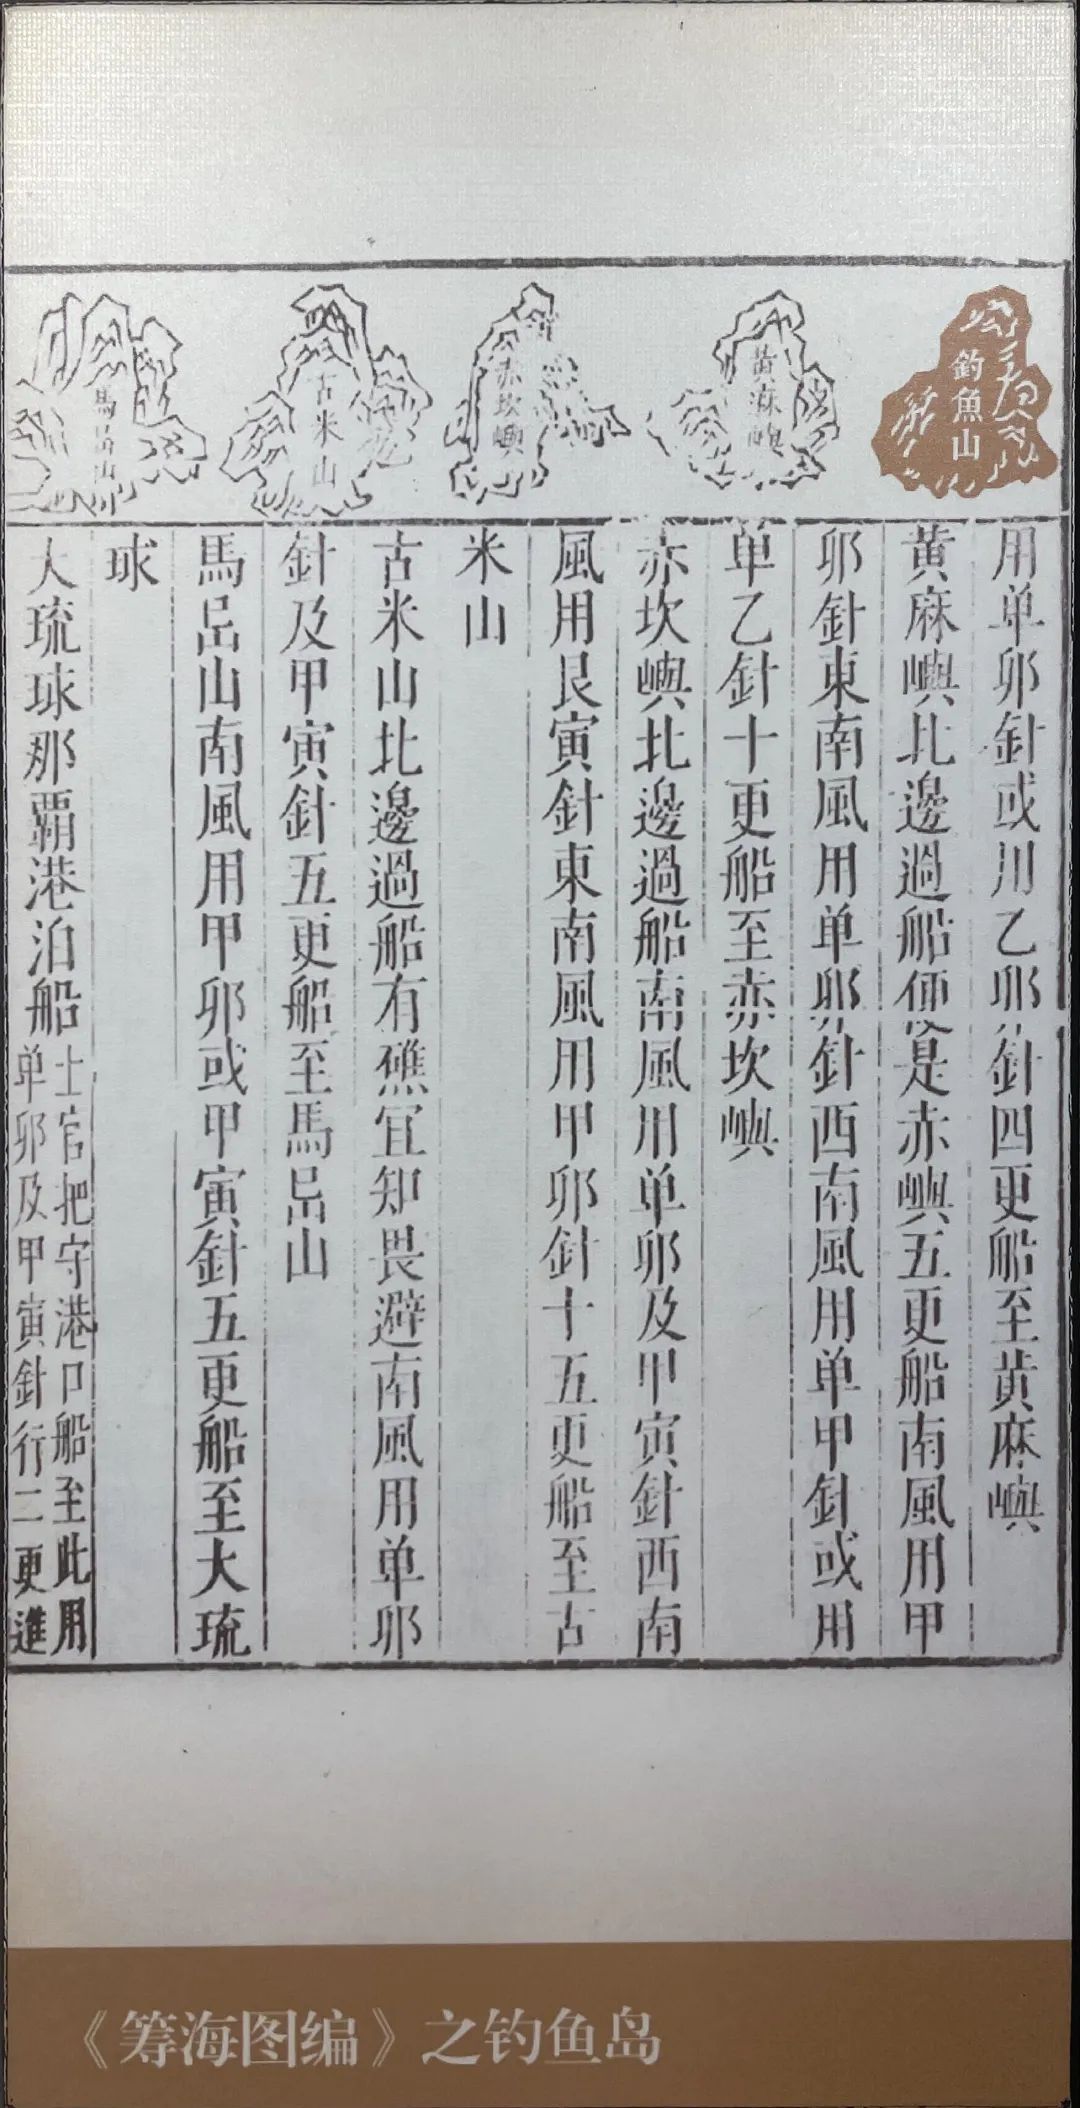 釣魚山
黄麻嶼
赤坎嶼
古米山
馬㠯山
用单卯針或用乙卯針四更船至黄麻嶼
黄麻嶼北邊過船便是赤嶼五更船南風用甲
卯針東南風用单卯針西南風用单甲針或用
单乙針十更船至赤坎嶼
赤坎嶼北邊過船南風用单卯及甲寅針西南
風用艮寅針東南風用甲卯針十五更船至古
米山
古米山北邊過船有礁宜知畏避南風用单卯
針及甲寅針五更船至馬㠯山
馬㠯山南風用甲卯或甲寅針五更船至大琉
球
大琉球那覇港泊船
士官把守港口船至此用
单卯及甲寅針行二更進
《筹海图编》之钓鱼岛